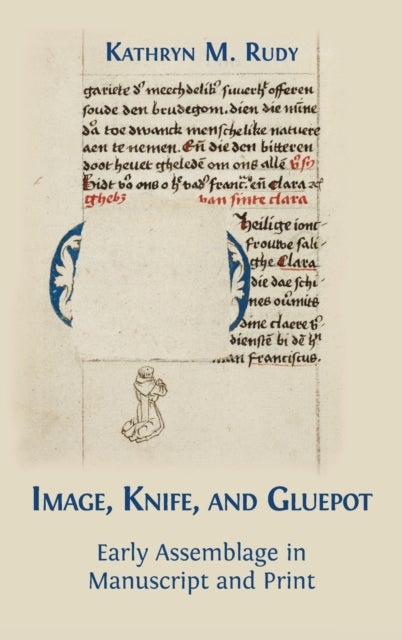 KATHRYN M. RUDY
gariete dʼ meechdelikʼ suuerhʼ offeren
soude den brudegom. dien die mīne
dʼa toe dwanck menschelike natuere
aen te nemen. Eñ die den bitteren
doot heuet gheledē om ons allē
Bidt vʼo ons o hʼ vadʼ francʼ. eñ Clara
ghebʒ van sinte clara
Heilige ionc-
frouwe sali-
ghe Clara
die dae schi-
nes oūmits
dine claere vʼ-
dienstē bi dē hʼ
man franciscus.
IMAGE, KNIFE, AND GLUEPOT
Early Assemblage in
Manuscript and Print